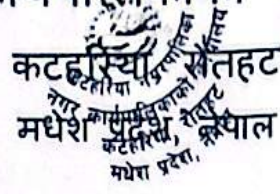 कटहरिया रौतहट
मधेश प्रदेश, नेपाल
कटहरिया नगरपालिका
नगर कार्यपालिकाको कार्यालय
कटहरिया, रौतहट
मधेश प्रदेश,